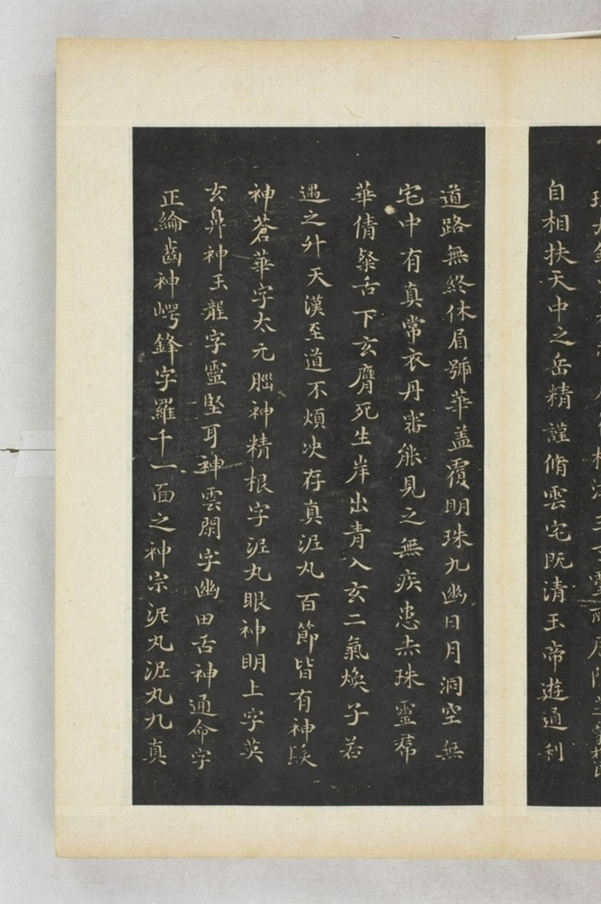 自相扶天中之岳精謹脩雲宅既清玉帝遊通利
道路無終休眉號華蓋覆明珠九幽日月洞空無
宅中有真常衣丹審能見之無疾患赤珠靈帬
華倩粲舌下玄膺死生岸出青入玄二氣煥子若
遇之升天漢至道不煩决存真泥丸百節皆有神髮
神蒼華字太元腦神精根字泥丸眼神明上字英
玄鼻神玉壟字靈堅耳神雲閑字幽田舌神通命字
正綸齒神崿鋒字羅千一面之神宗泥丸泥丸九真